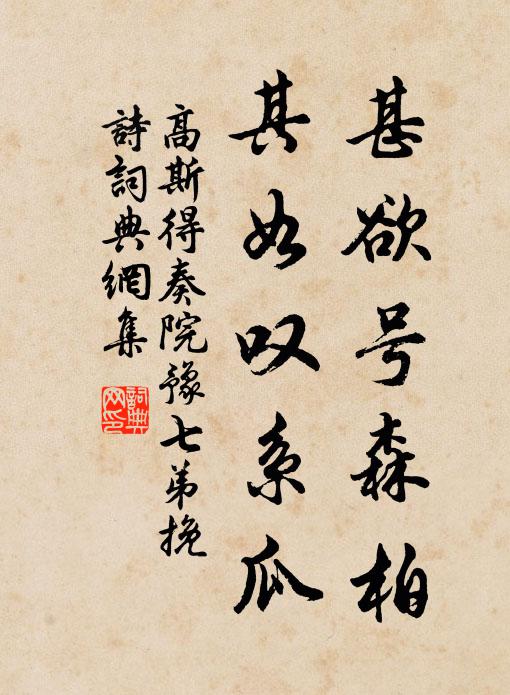 甚欲号森柏
其如叹系瓜
高斯得奏院豫七弟挽
詩詞典網集
詞典网印